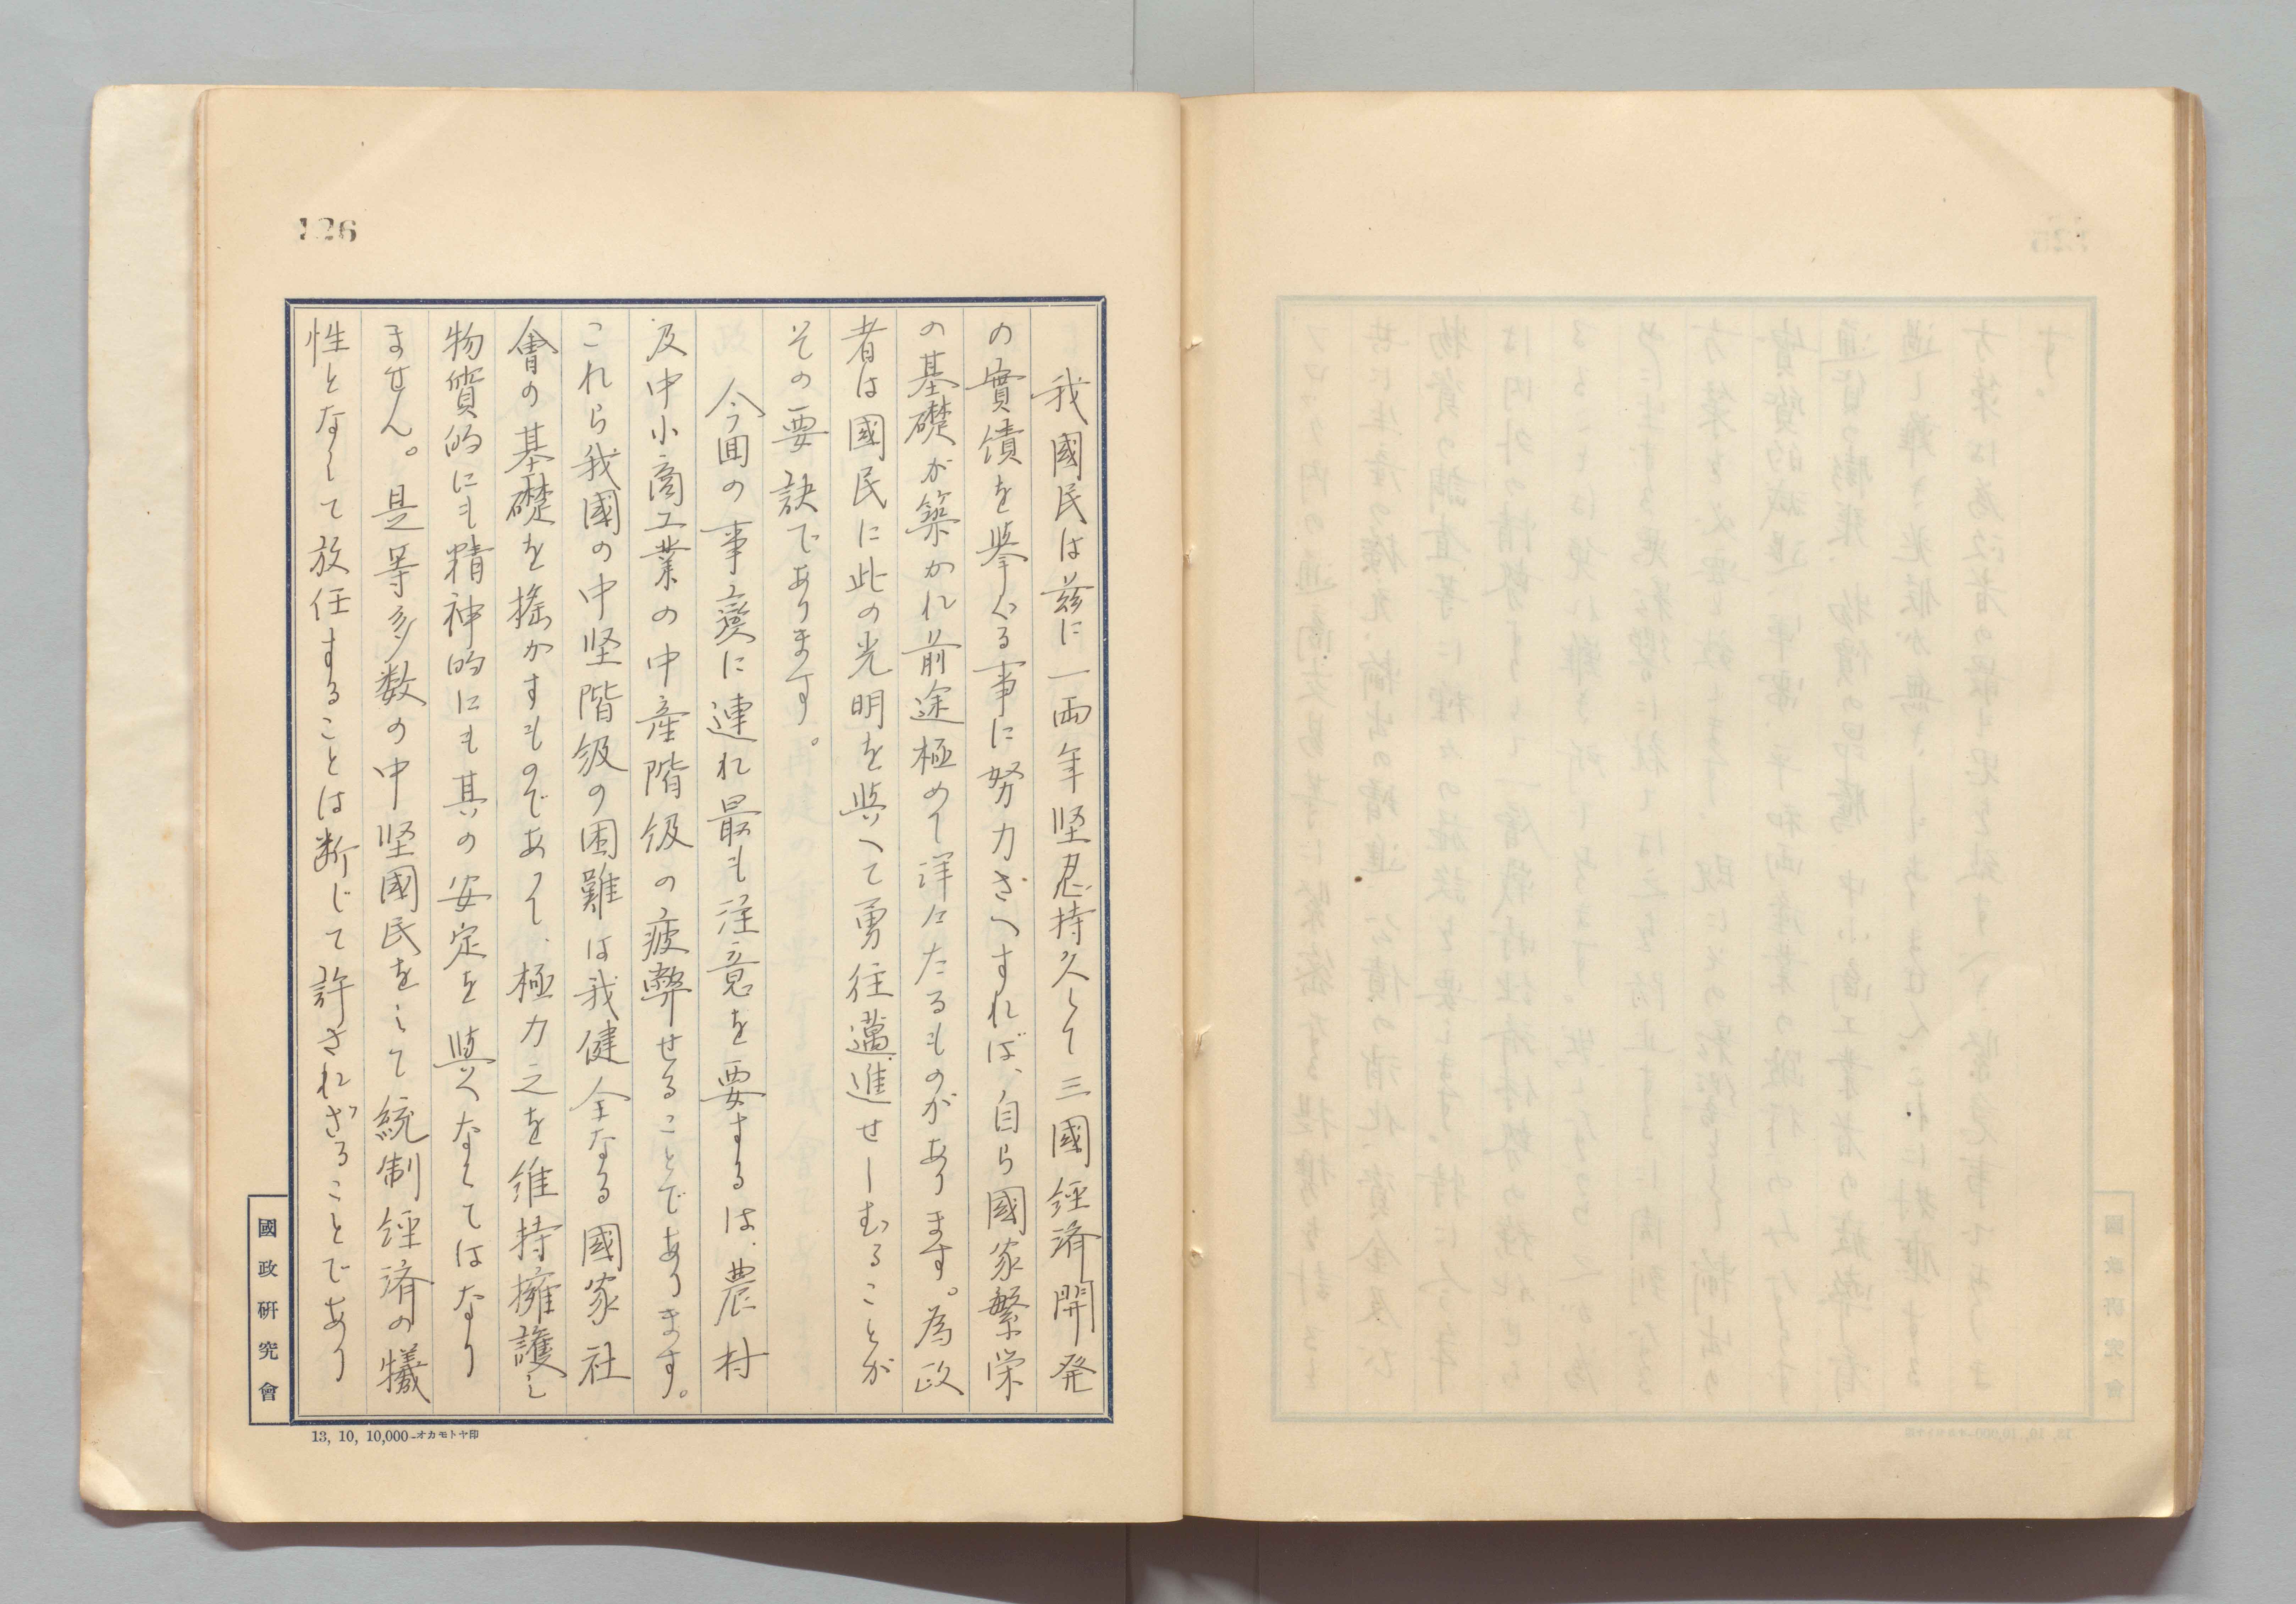 126
我國民は茲に一両年堅忍持久して三國経済開発
の實績を挙ぐる事に努力さへすれば、自ら國家繁栄
の基礎が築かれ前途極めて洋々たるものがあります。為政
者は國民に此の光明を與へて勇往邁進せしむることが
その要訣であります。
今回の事変に連れ最も注意を要するは、農村
及中小商工業の中産階級の疲弊せることであります。
これら我國の中堅階級の困難は我健全なる國家社
會の基礎を揺かすものであつて、極力之を維持擁護し
物質的にも精神的にも其の安定を與へなくてはなり
ません。是等多数の中堅國民をして統制経済の犠
性となして放任することは断じて許されざることであり
國政研究會
13, 10, 10,000-オカモトヤ印